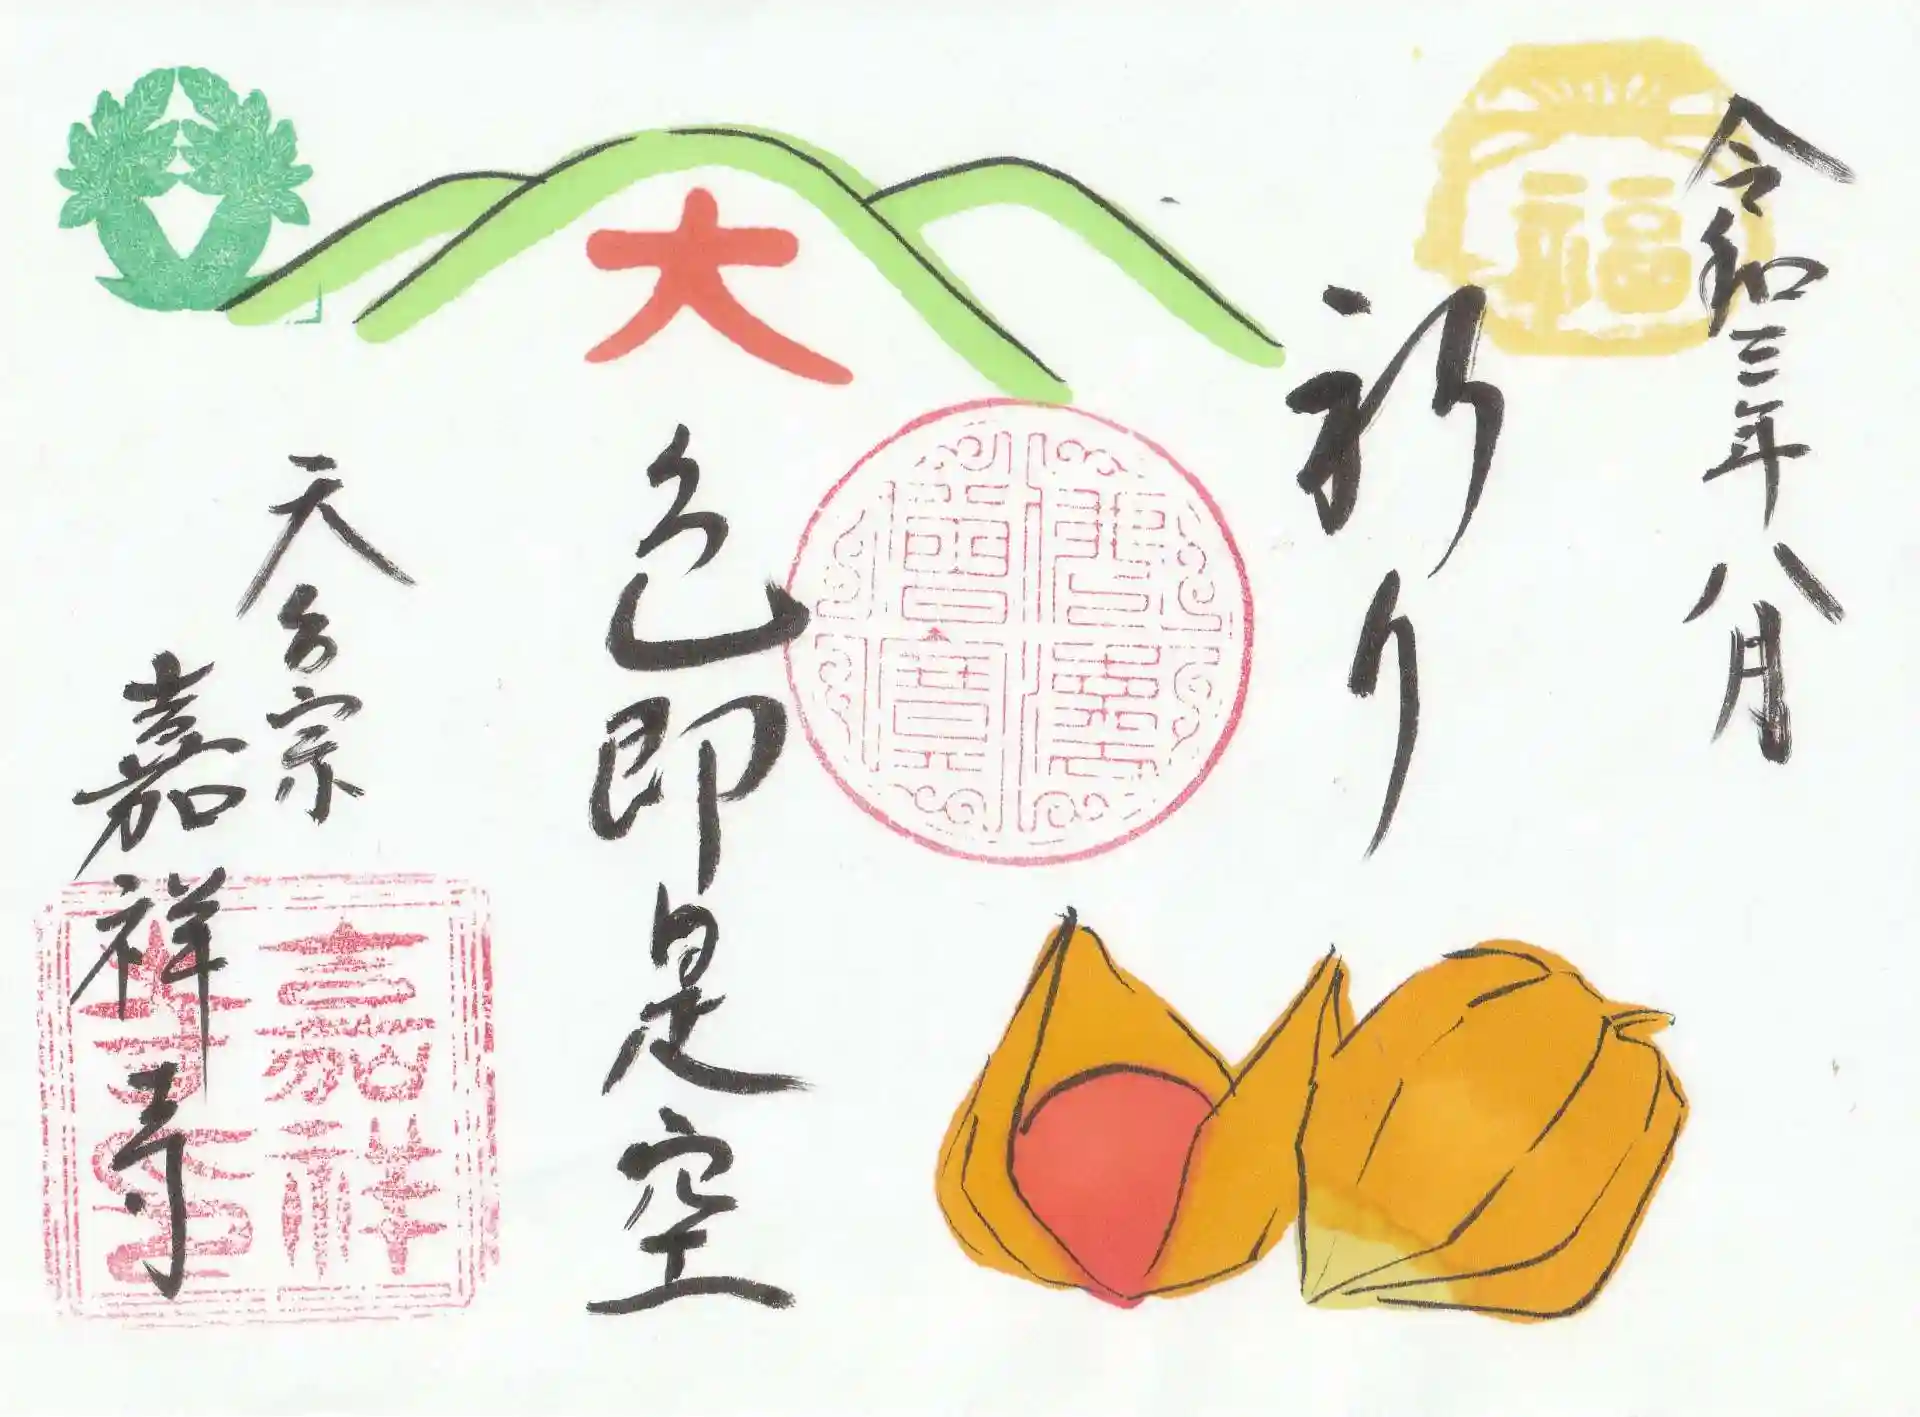 令和三年八月
福
祈り
大
色即是空
天台宗
嘉祥寺
嘉祥